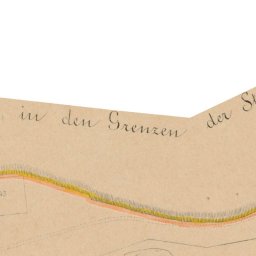 in den Grenzen der St